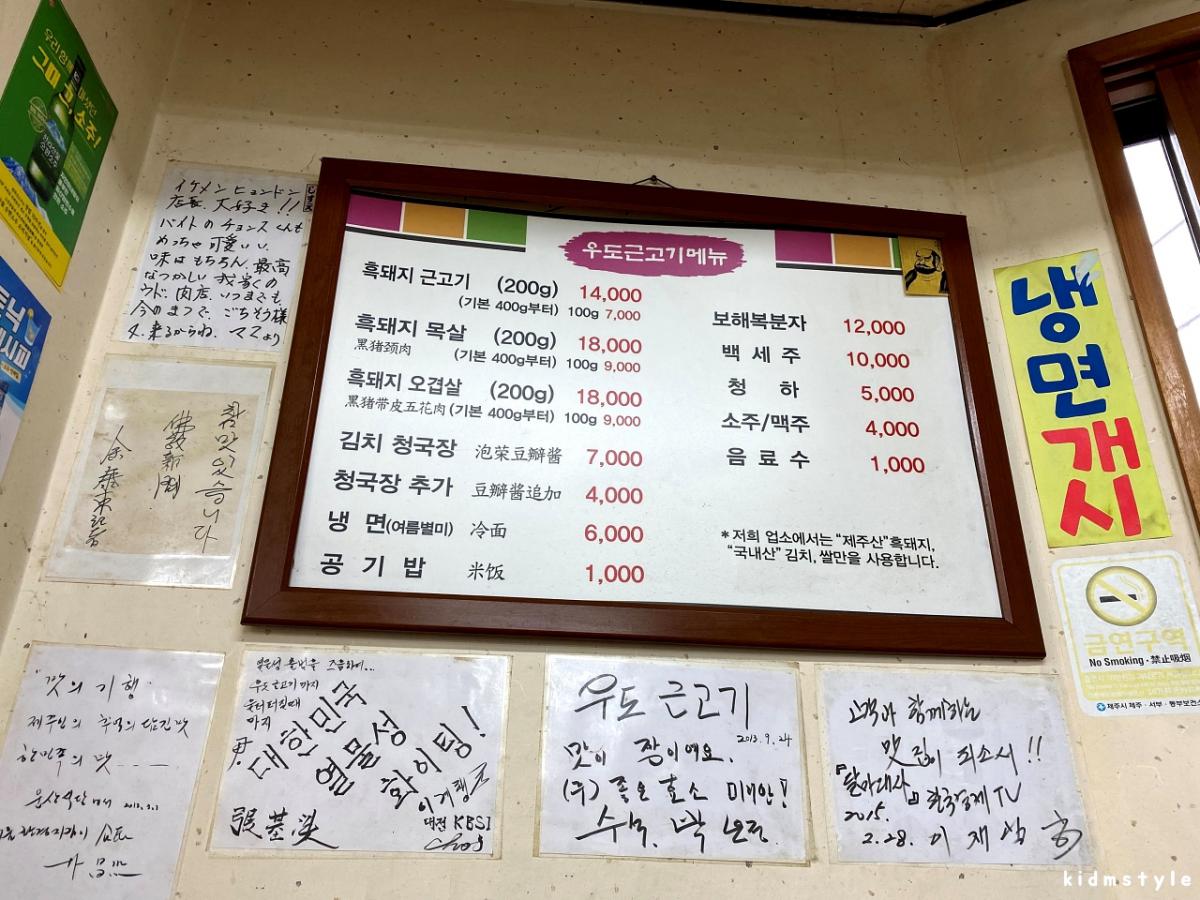 우리 함께
소주!
イケメン ヒョンドン
店長 大好き!!
バイトのチョンスくんも
めっちゃ可愛いい
味はもちろん、最高
なつかしい 我書くの
ウド 肉店、いつまでも
今のまつで、ごちそう様
又、来るからね、ママより
참 맛있습니다
佛教新聞
우도근고기메뉴
흑돼지 근고기 (200g) 14,000
(기본 400g부터) 100g 7,000
흑돼지 목살 (200g) 18,000
黑猪颈肉 (기본 400g부터) 100g 9,000
흑돼지 오겹살 (200g) 18,000
黑猪带皮五花肉 (기본 400g부터) 100g 9,000
김치 청국장 泡菜豆瓣酱 7,000
청국장 추가 豆瓣酱追加 4,000
냉 면(여름별미) 冷面 6,000
공 기 밥 米饭 1,000
보해복분자 12,000
백 세 주 10,000
청 하 5,000
소주/맥주 4,000
음 료 수 1,000
*저희 업소에서는 “제주산”흑돼지,
“국내산” 김치, 쌀만을 사용합니다.
냉면개시
금연구역
No Smoking · 禁止吸烟
제주시 제주 · 서부 · 동부보건소
"맛의 기행"
제주인의 추억의 담긴 맛
한민족의 맛
우도 근고기까지
대한민국
열물성
화이팅!
대전 KBS
우도 근고기
2013.9.24
맛이 짱이에요.
(주) 좋은 효소 미인!
고객과 함께하는
맛집이 되소서!!
『달마대사』 한국경제TV
2015.
2.28. 이재상
kidmstyle